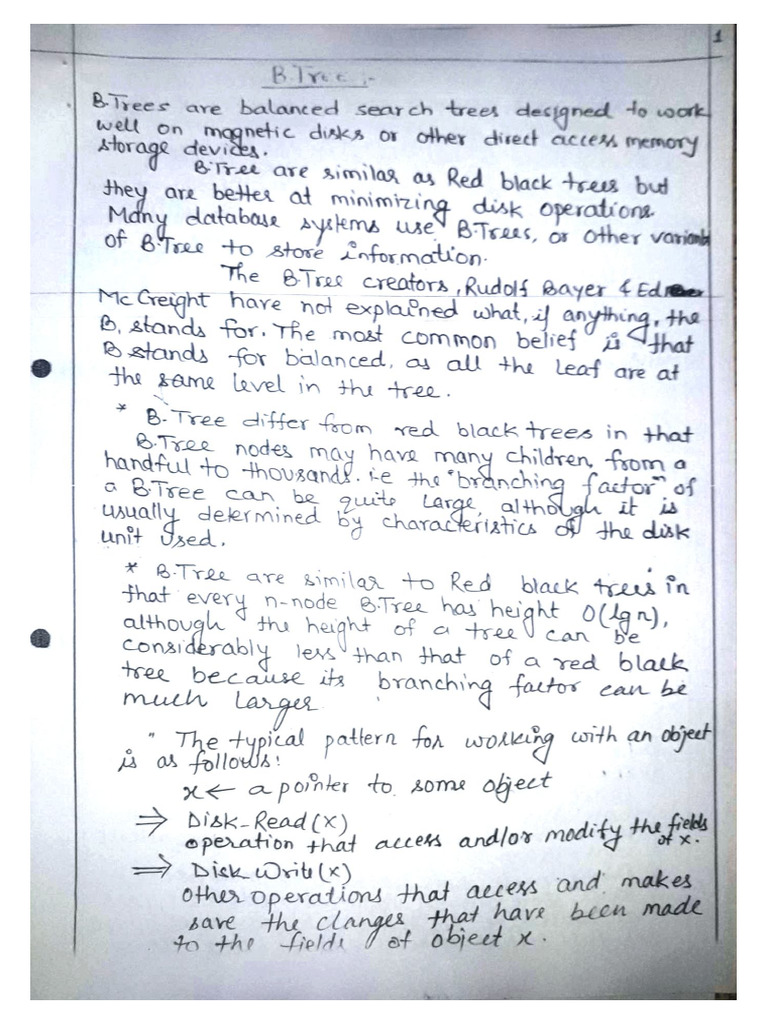 1
B.Tree :-
B-Trees are balanced search trees designed to work
well on magnetic disks or other direct access memory
storage devices.
B-Tree are similar as Red black trees but
they are better at minimizing disk operations.
Many database systems use B-Trees, or other variants
of B-Tree to store information.
The B-Tree creators, Rudolf Bayer & Ed
Mc Creight have not explained what, if anything, the
B, stands for. The most common belief is that
B stands for balanced, as all the leaf are at
the same level in the tree.
* B-Tree differ from red black trees in that
B-Tree nodes may have many children, from a
handful to thousands. i.e the "branching factor" of
a B-Tree can be quite large, although it is
usually determined by characteristics of the disk
unit used.
* B-Tree are similar to Red black trees in
that every n-node B-Tree has height O(lg n),
although the height of a tree can be
considerably less than that of a red black
tree because its branching factor can be
much larger
" The typical pattern for working with an object
is as follows:
x ← a pointer to some object
⇒ Disk-Read(x)
operation that access and/or modify the fields
of x.
⇒ Disk-Write(x)
other operations that access and makes
save the clanges that have been made
to the fields of object x.